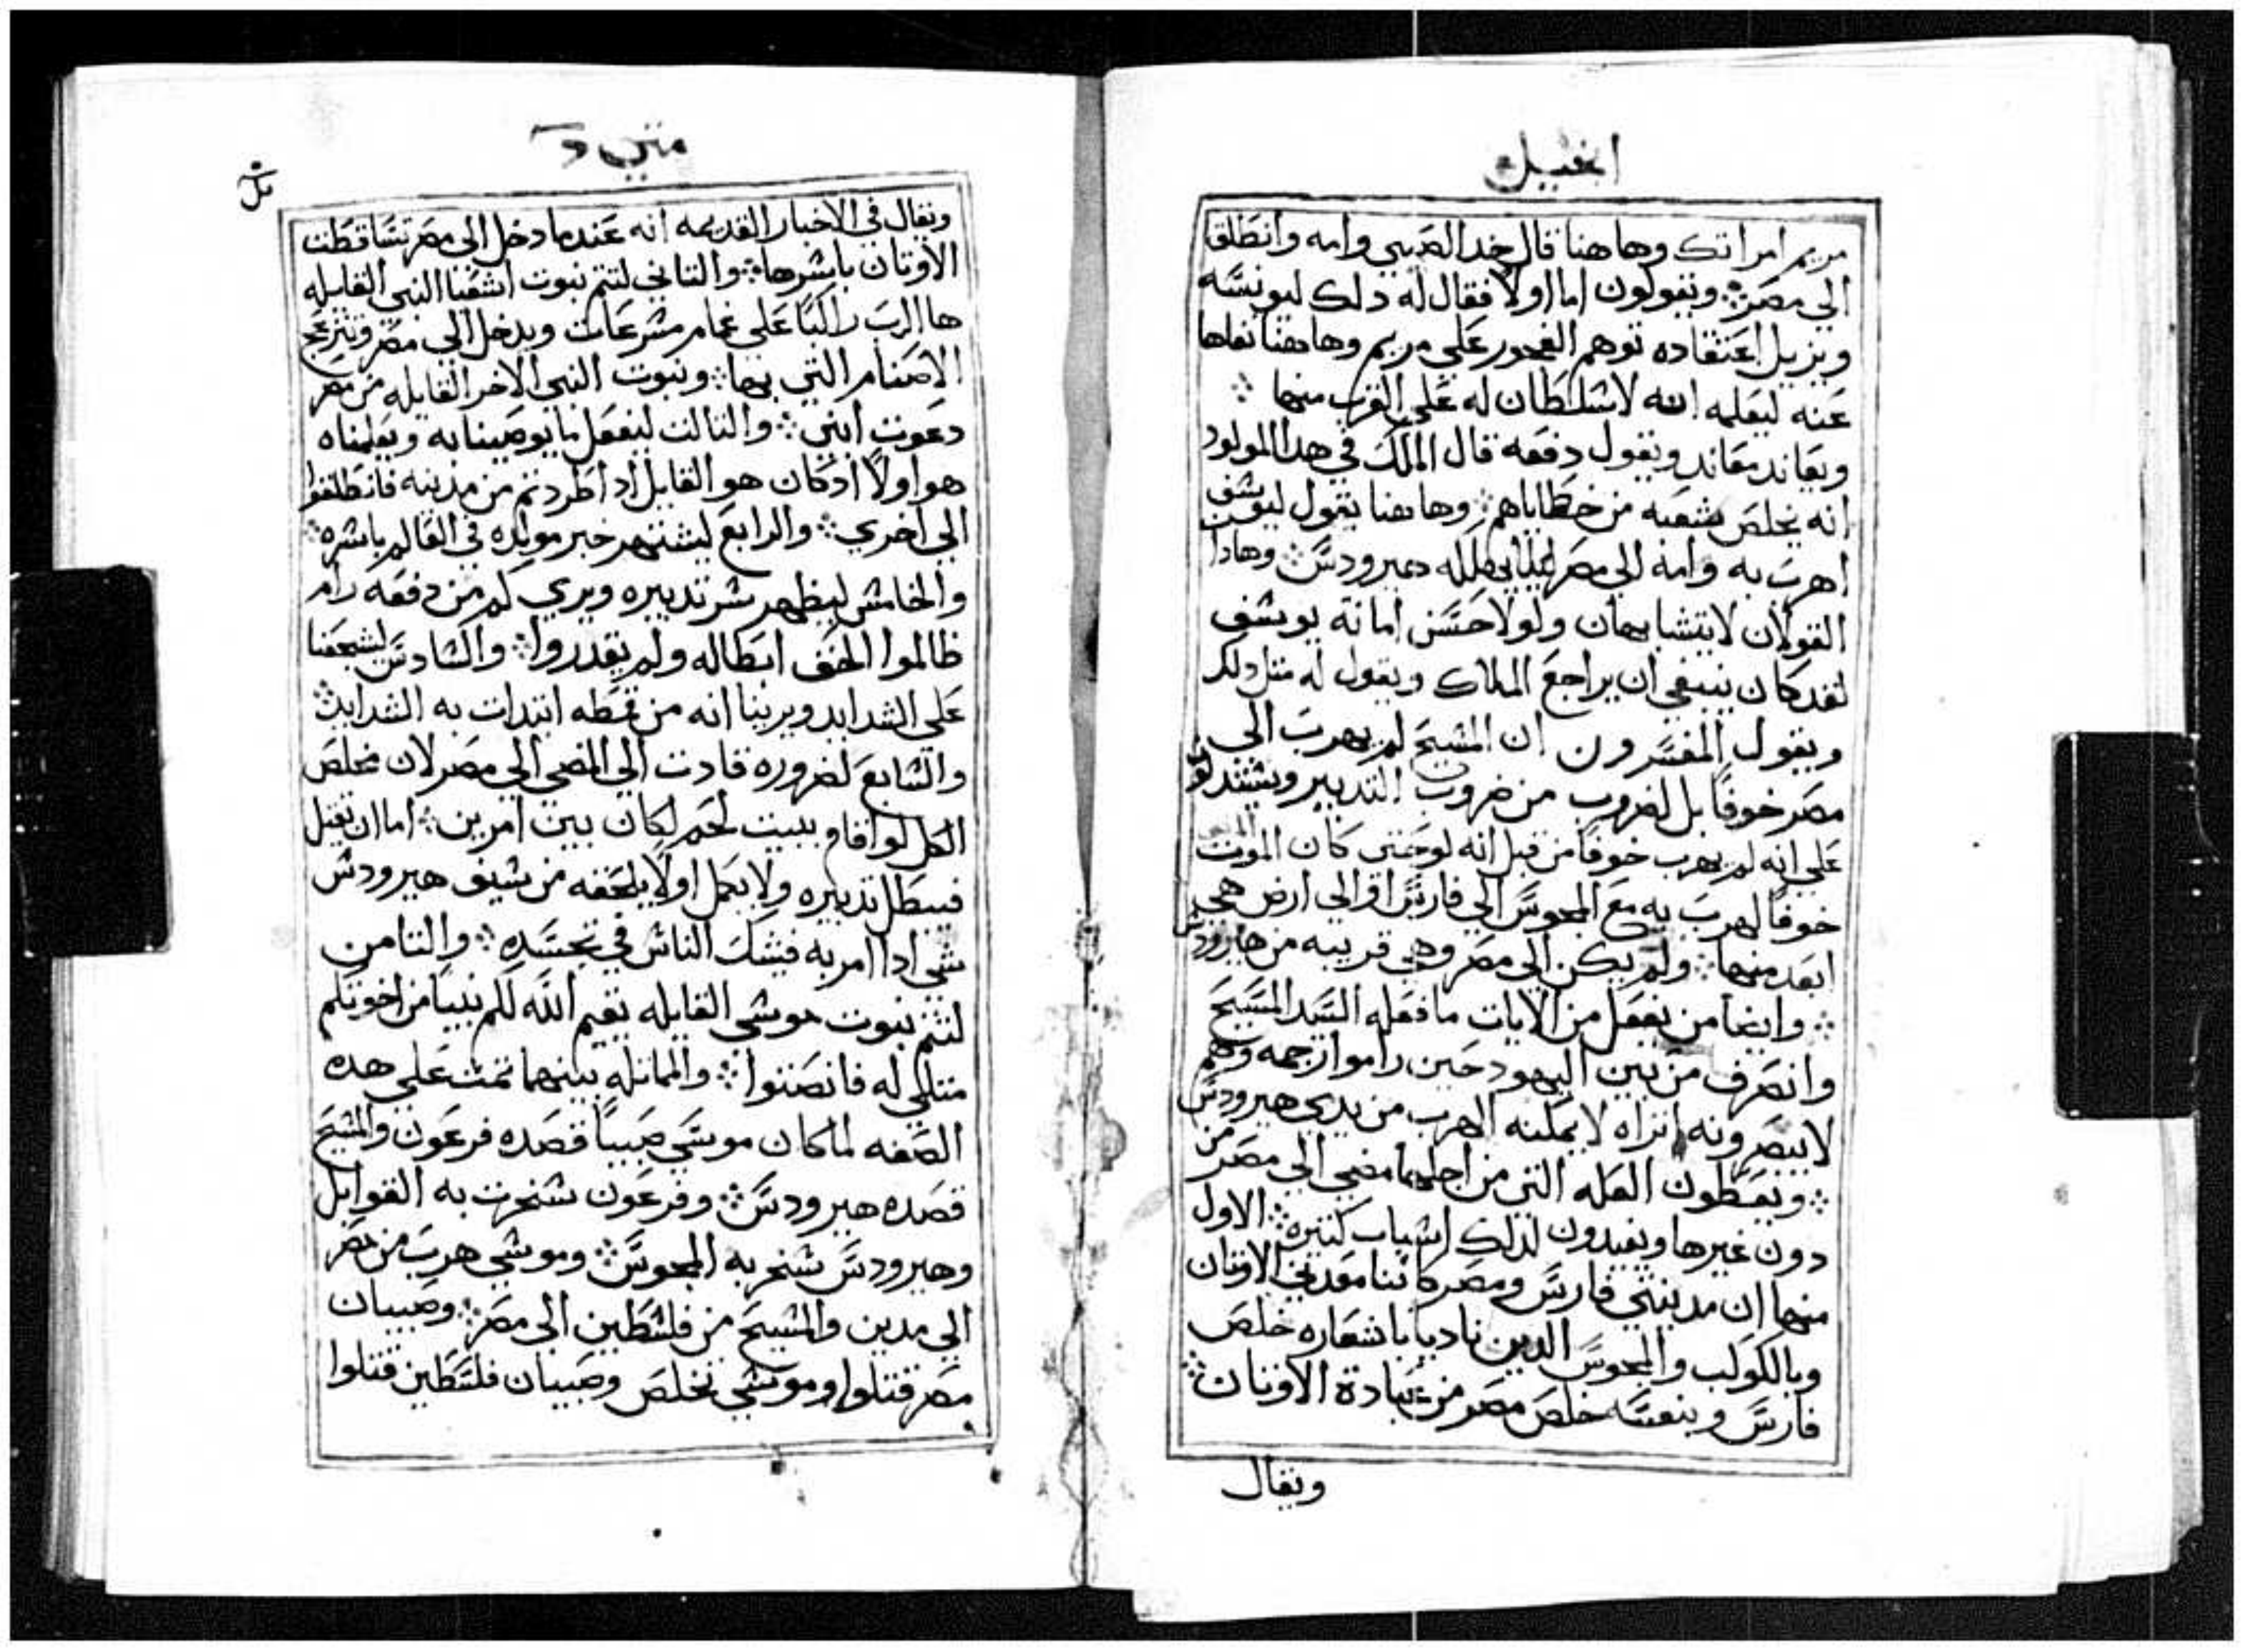 انجيل
مريم امراتك وها هنا قال خد الصبي وامه وانطلق
الي مصر ويقولون اما اولا فقال له دلك ليونسه
ويزيل اعتقاده توهم الفجور علي مريم وهاهنا نفاها
عنه ليعلمه انه لا سلطان له علي القرب منها
ويعاند معاند ويقول دفعه قال الملك في هدا المولود
انه يخلص شعبه من خطاياهم وهاهنا يقول ليوسف
اهرب به وامه الي مصر هيرودس وهادا
القولان لا يتشابهان ولولا حسن امانة يوسف
لقد كان ينبغي ان يراجع الملاك ويقول له مثل دلك
ويقول المفسرون ان المسيح لم يهرب الي
مصر خوفا بل لضروب من ضروب التدبير ويستدلون
علي انه لم يهرب خوفا من قبل انه لو خشي كان الموت
خوفا لهرب به مع المجوس الي فارس او الي ارض هي
ابعد منها ولم يكن الي مصر وهي قريبه من هيرودس
وايضا من يفعل من الايات ما فعله السيد المسيح
وانصرف من بين اليهود حين راموا رجمه وهم
لا يبصرونه اتراه لا يمكنه الهرب من يدي هيرودس
ويعطون العله التي من اجلها مضي الي مصر من
دون غيرها ويفيدون لدلك اسباب كتيره الاول
منها ان مدينتي فارس ومصر كانتا معدني الاوتان
وبالكوكب والمجوس الدين ناديا باشعاره خلص
فارس وبنفسه خلص مصر من عبادة الاوتان
ويقال
متي د
ويقال في الاخبار القديمه انه عندما دخل الي مصر تساقطت
الاوتان باسرها والتاني لتتم نبوت اشعيا النبي القايله
ها الرب راكبا علي غمام مسرعات ويدخل الي مصر وتتزعزع
الاصنام التي بها ونبوت النبي الاخر القايله من مصر
دعوت ابني والتالت ليفعل ما يوصينا به ويعلمناه
هو اولا ادكان هو القايل ادا طردتم من مدينه فانطلقوا
الي اخري والرابع ليشتهر خبر مولده في العالم باسره
والخامس ليظهر سر تدبيره ويري كم من دفعه رام
ظالموا الحق ابطاله ولم يقدروا والسادس ليشجعنا
علي الشدايد ويرينا انه من قمطه ابتدات به الشدايد
والسابع لضروره قادت الي المضي الي مصر لان مخلص
الكل لو اقام ببيت لحم لكان بين امرين اما ان يقتل
فيبطل تدبيره ولا يكمل او لا يلحقه من سيف هيرودس
شي ادا امر به فيشك الناس في تجسده والتامن
لتتم نبوت موسي القايله يقيم الله لكم نبيا من اخوتكم
متلي له فانصتوا والماتله بينهما تمت علي هده
الصفه لما كان موسي صبيا قصده فرعون والمسيح
قصده هيرودس وفرعون سخرت به القوابل
وهيرودس سخر به المجوس وموسي هرب من مصر
الي مدين والمسيح من فلسطين الي مصر وصبيان
مصر قتلوا وموسي تخلص وصبيان فلسطين قتلوا